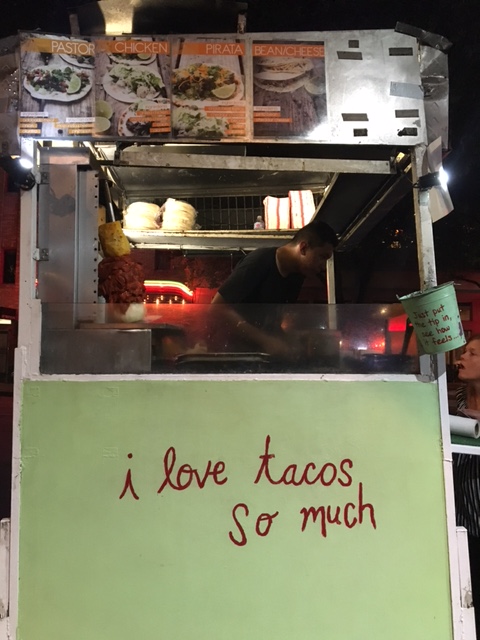 PASTOR CHICKEN PIRATA BEAN/CHEESE
Just put
the tip in,
see how
it feels
i love tacos
so much